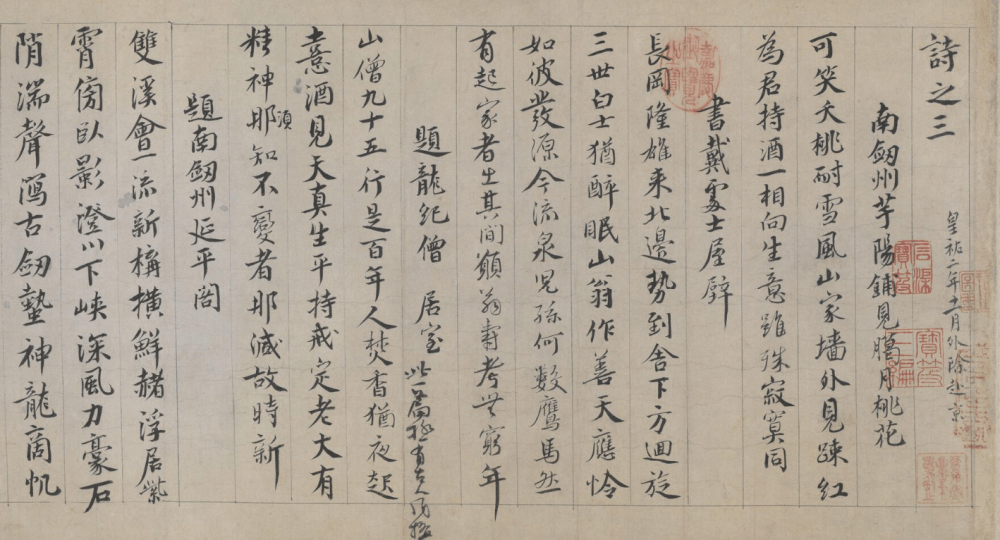 詩之三
皇祐二年十一月外除赴京
南劔州芋陽鋪見臈月桃花
可笑夭桃耐雪風山家墻外見踈紅
為君持酒一相向生意雖殊寂寞同
書戴處士屋壁
長岡隆雄来北邉勢到舍下方迴旋
三世白士猶醉眠山翁作善天應怜
如彼發源今流泉児孫何數鷹馬然
有起家者出其間願翁壽考無窮年
題龍紀僧居室
此一篇極有古人風格
山僧九十五行是百年人焚香猶夜起
憙酒見天真生平持戒定老大有
精神須
耶知不變者那減故時新
題南劔州延平閣
雙溪會一流新搆橫鮮赭浮居紫
霄傍卧影澄川下峡深風力豪石
陗湍聲瀉古劔蟄神龍商帆